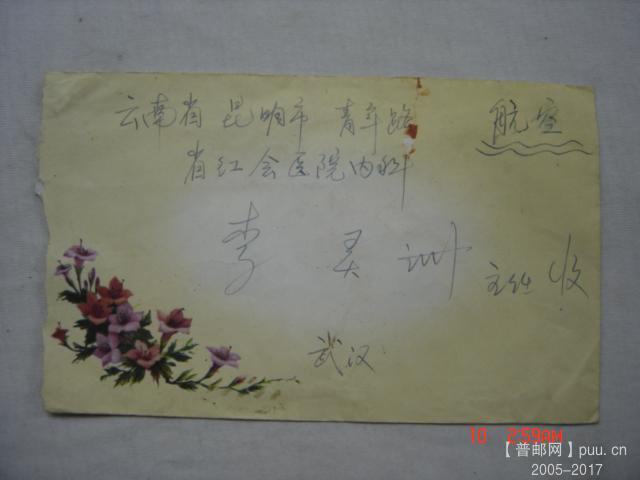 云南省昆明市青年路
航空
省红会医院内科
李灵训 主任 收
武汉
10 2:59AM
【普邮网】puu.cn
2005-2017